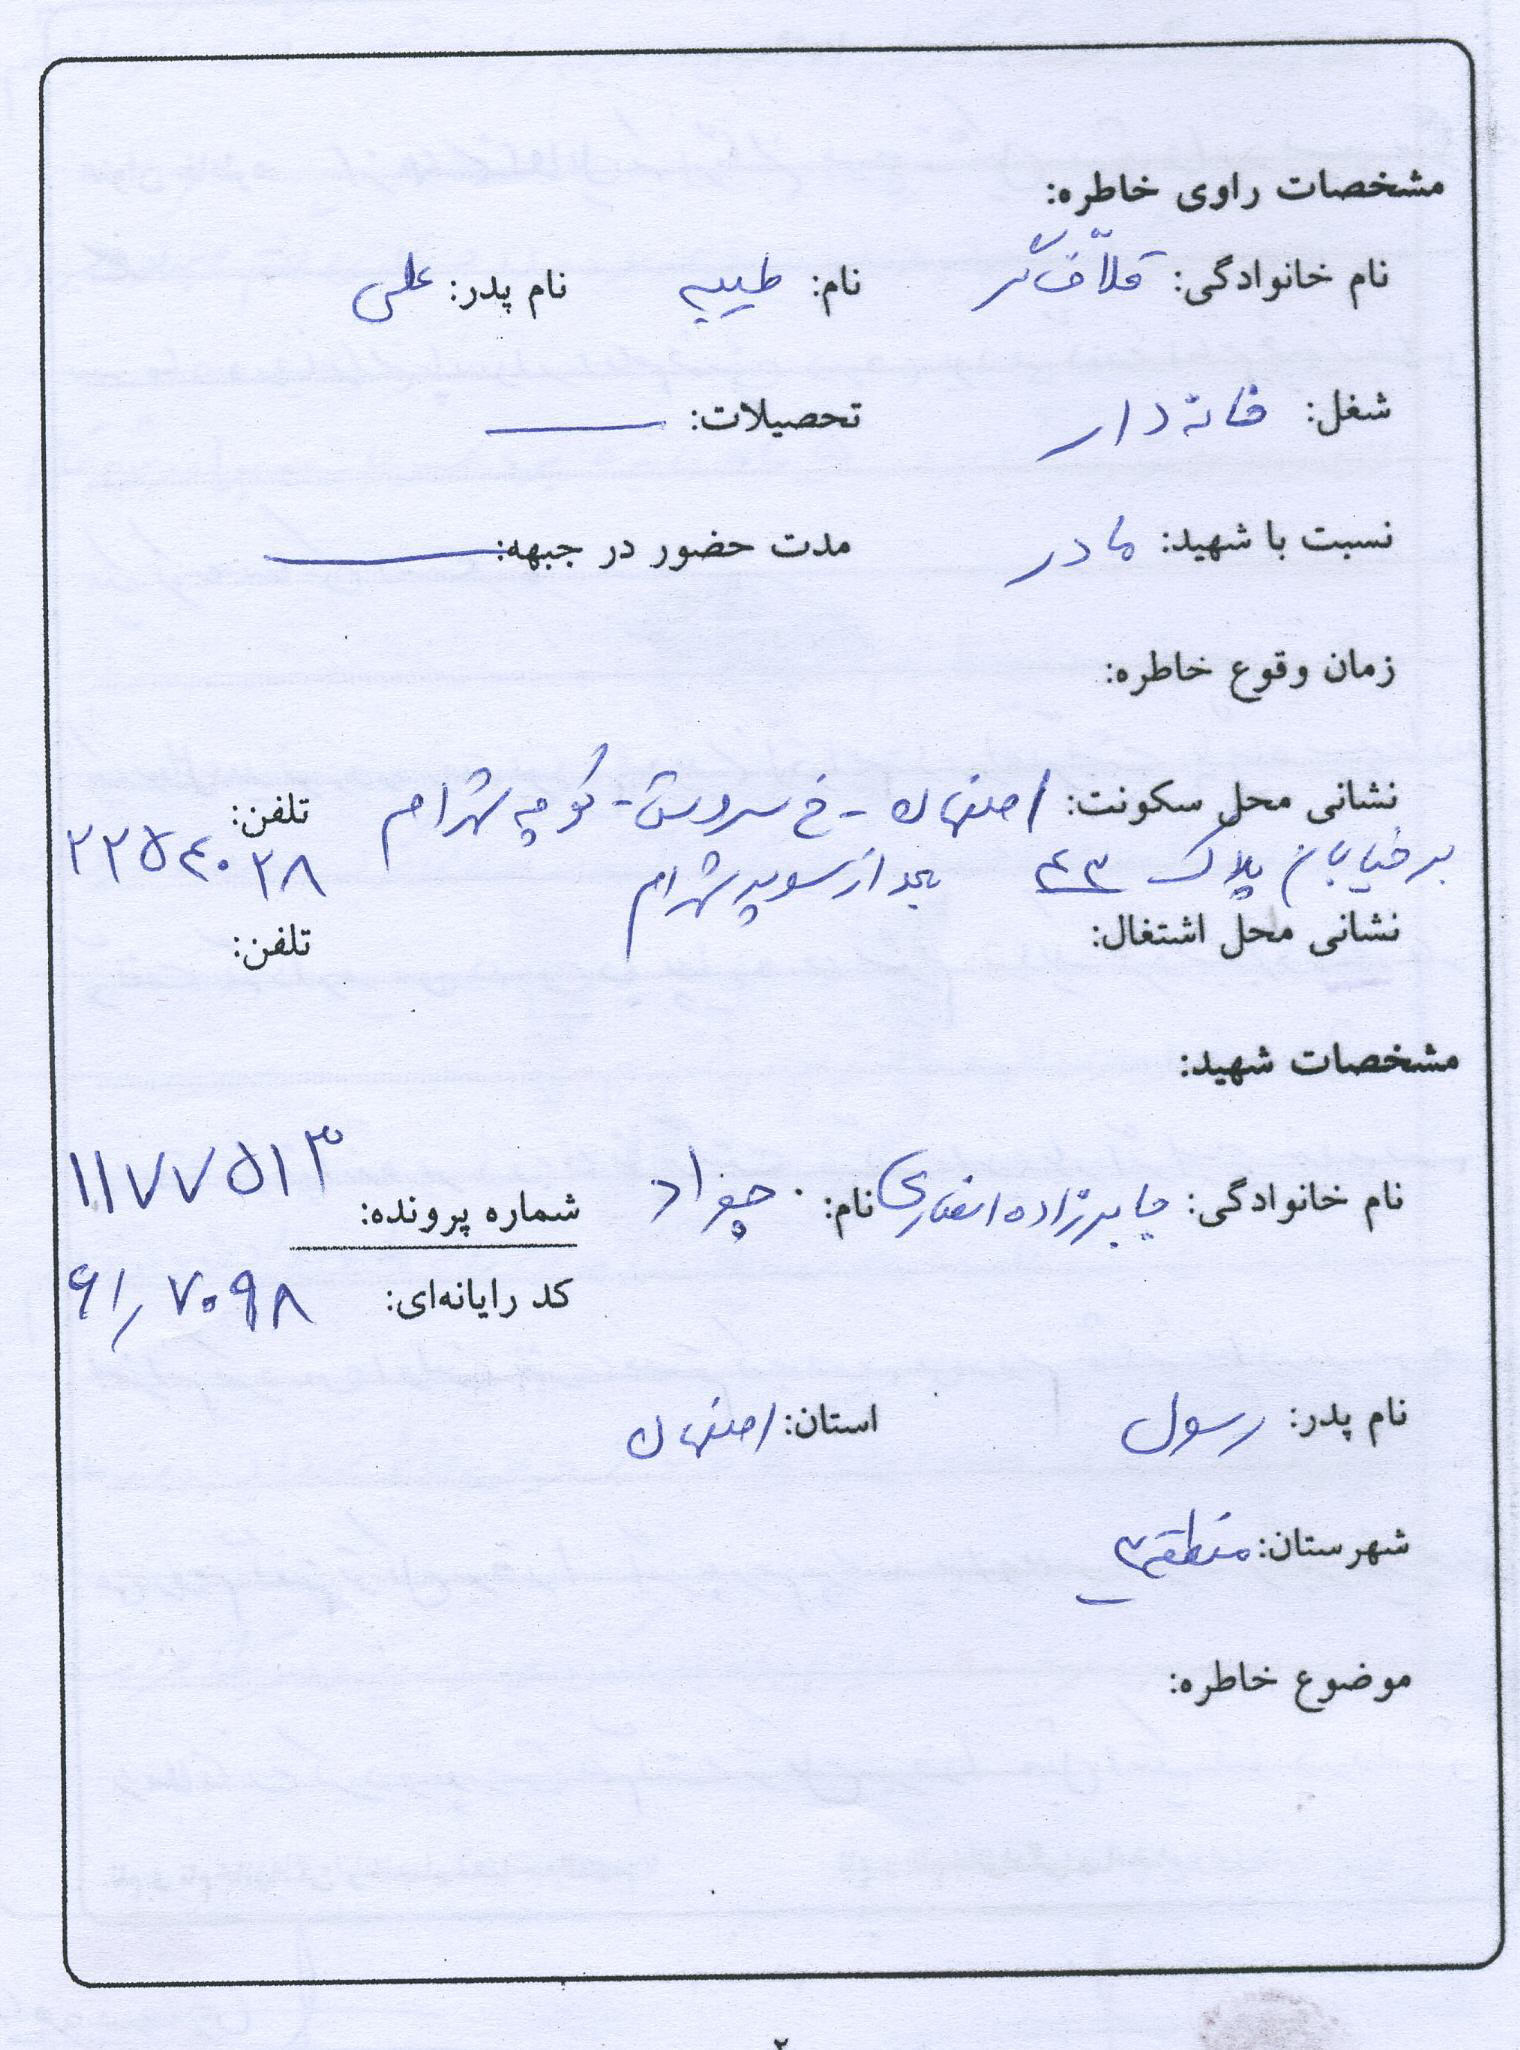 مشخصات راوی خاطره:
نام خانوادگی: قلاف‌گر نام: طیبه نام پدر: علی
شغل: خانه دار تحصیلات: ـــــ
نسبت با شهید: مادر مدت حضور در جبهه: ـــــ
زمان وقوع خاطره:
نشانی محل سکونت: اصفهان - خ سروش - کوچه شهرام تلفن:
بر خیابان پلاک ۴۳ بعد از سوپر شهرام ۲۲۵۴۰۲۸
نشانی محل اشتغال: تلفن:
مشخصات شهید:
نام خانوادگی: جابرزاده انصاری نام: جواد شماره پرونده: ۱۱۷۷۵۱۳
کد رایانه‌ای: ۶۱/۷۰۹۸
نام پدر: رسول استان: اصفهان
شهرستان: منطقه ۳
موضوع خاطره:
۲